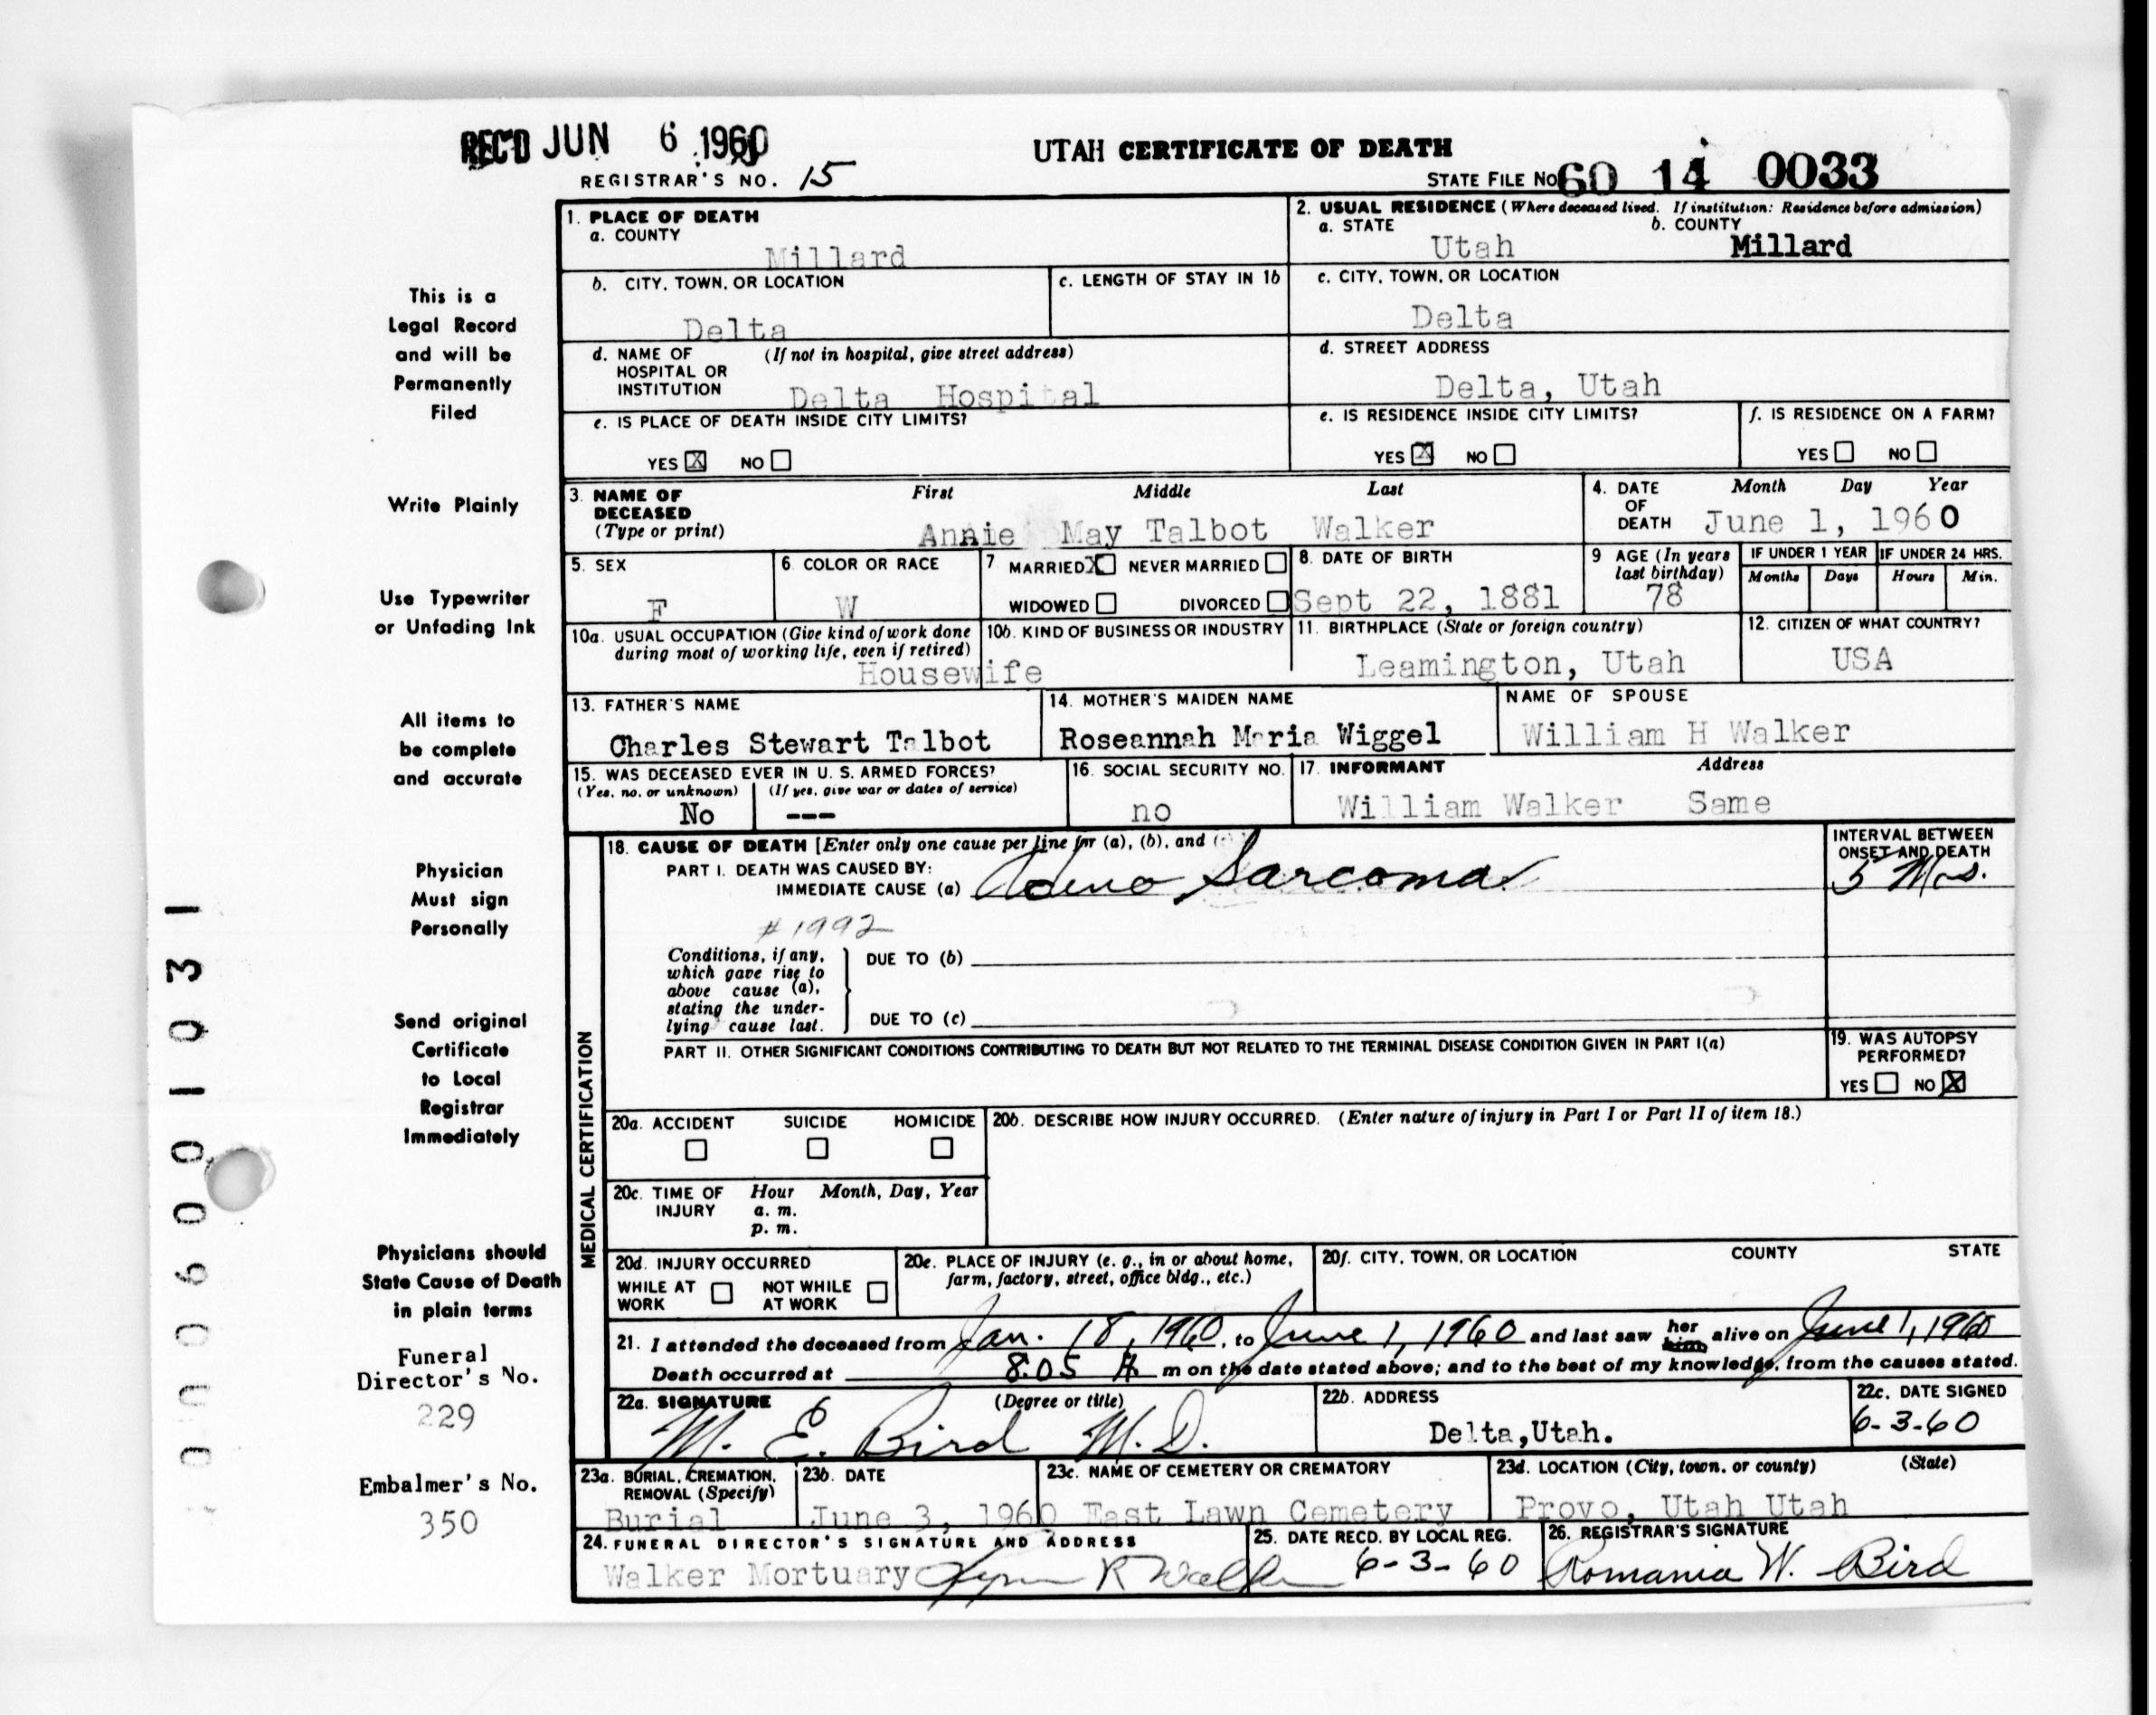 REC'D JUN 6 1960
UTAH CERTIFICATE OF DEATH
REGISTRAR'S NO. 15
STATE FILE No 60 14 0033
1. PLACE OF DEATH
a. COUNTY
Millard
2. USUAL RESIDENCE (Where deceased lived. If institution: Residence before admission)
a. STATE b. COUNTY
Utah Millard
b. CITY, TOWN, OR LOCATION
Delta
c. LENGTH OF STAY IN 1b
c. CITY, TOWN, OR LOCATION
Delta
d. NAME OF HOSPITAL OR INSTITUTION (If not in hospital, give street address)
Delta Hospital
d. STREET ADDRESS
Delta, Utah
e. IS PLACE OF DEATH INSIDE CITY LIMITS?
YES X NO
e. IS RESIDENCE INSIDE CITY LIMITS?
YES X NO
f. IS RESIDENCE ON A FARM?
YES NO
3. NAME OF DECEASED (Type or print)
First Middle Last
Annie May Talbot Walker
4. DATE OF DEATH
Month Day Year
June 1, 1960
5. SEX
F
6. COLOR OR RACE
W
7 MARRIED X NEVER MARRIED
WIDOWED DIVORCED
8. DATE OF BIRTH
Sept 22, 1881
9 AGE (In years last birthday)
78
IF UNDER 1 YEAR
Months Days
IF UNDER 24 HRS.
Hours Min.
10a. USUAL OCCUPATION (Give kind of work done during most of working life, even if retired)
Housewife
10b. KIND OF BUSINESS OR INDUSTRY
11. BIRTHPLACE (State or foreign country)
Leamington, Utah
12. CITIZEN OF WHAT COUNTRY?
USA
13. FATHER'S NAME
Charles Stewart Talbot
14. MOTHER'S MAIDEN NAME
Roseannah Maria Wiggel
NAME OF SPOUSE
William H Walker
15. WAS DECEASED EVER IN U. S. ARMED FORCES?
(Yes, no, or unknown) (If yes, give war or dates of service)
No ---
16. SOCIAL SECURITY NO.
no
17. INFORMANT Address
William Walker Same
MEDICAL CERTIFICATION
18. CAUSE OF DEATH [Enter only one cause per line for (a), (b), and (c)
PART I. DEATH WAS CAUSED BY:
IMMEDIATE CAUSE (a) Adeno Sarcoma
INTERVAL BETWEEN ONSET AND DEATH
5 Mos.
#1992
Conditions, if any, which gave rise to above cause (a), stating the underlying cause last.
DUE TO (b)
DUE TO (c)
PART II. OTHER SIGNIFICANT CONDITIONS CONTRIBUTING TO DEATH BUT NOT RELATED TO THE TERMINAL DISEASE CONDITION GIVEN IN PART I(a)
19. WAS AUTOPSY PERFORMED?
YES NO X
20a. ACCIDENT SUICIDE HOMICIDE
20b. DESCRIBE HOW INJURY OCCURRED. (Enter nature of injury in Part I or Part II of item 18.)
20c. TIME OF INJURY Hour Month, Day, Year
a. m.
p. m.
20d. INJURY OCCURRED
WHILE AT WORK NOT WHILE AT WORK
20e. PLACE OF INJURY (e. g., in or about home, farm, factory, street, office bldg., etc.)
20f. CITY, TOWN, OR LOCATION COUNTY STATE
21. I attended the deceased from Jan. 18, 1960, to June 1, 1960 and last saw her him alive on June 1, 1960
Death occurred at 8:05 A m on the date stated above; and to the best of my knowledge, from the causes stated.
22a. SIGNATURE (Degree or title)
M. E. Bird M.D.
22b. ADDRESS
Delta,Utah.
22c. DATE SIGNED
6-3-60
23a. BURIAL, CREMATION, REMOVAL (Specify)
Burial
23b. DATE
June 3, 1960
23c. NAME OF CEMETERY OR CREMATORY
East Lawn Cemetery
23d. LOCATION (City, town, or county) (State)
Provo, Utah Utah
24. FUNERAL DIRECTOR'S SIGNATURE AND ADDRESS
Walker Mortuary R Walker
25. DATE RECD. BY LOCAL REG.
6-3-60
26. REGISTRAR'S SIGNATURE
Romania W. Bird
This is a
Legal Record
and will be
Permanently
Filed
Write Plainly
Use Typewriter
or Unfading Ink
All items to
be complete
and accurate
Physician
Must sign
Personally
Send original
Certificate
to Local
Registrar
Immediately
Physicians should
State Cause of Death
in plain terms
Funeral
Director's No.
229
Embalmer's No.
350
0006001031